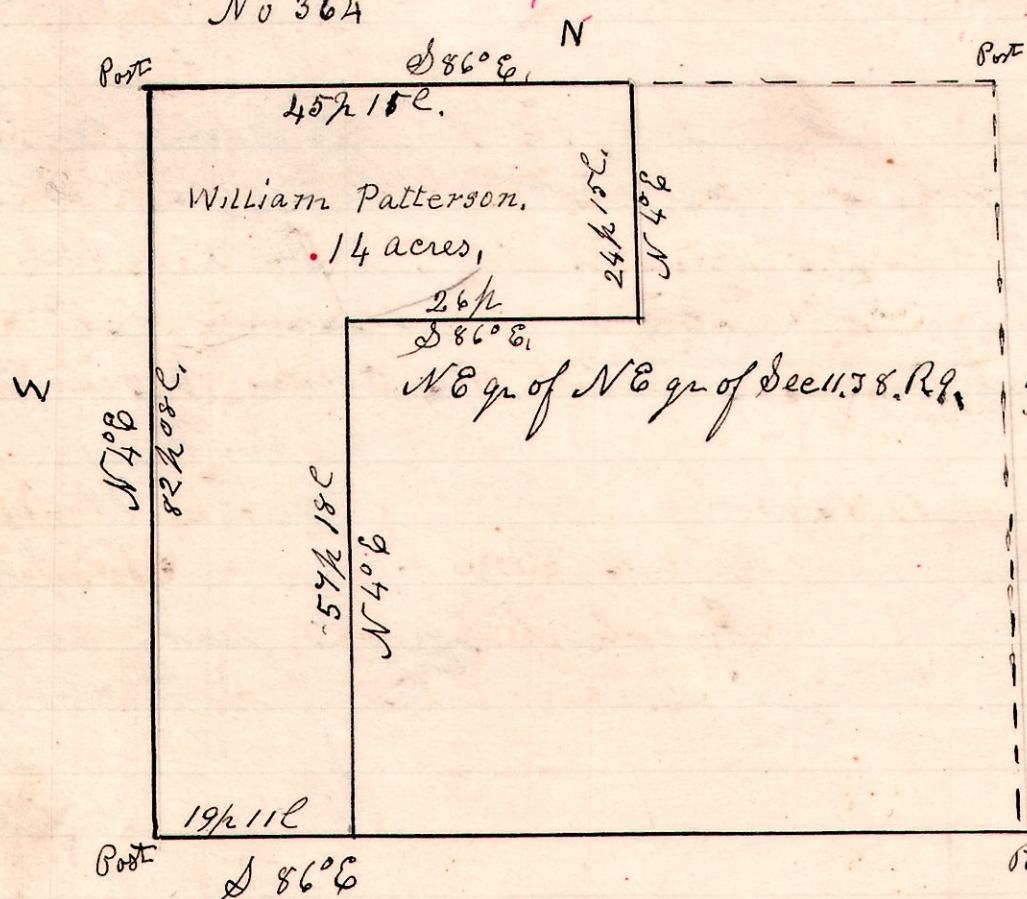 No 364
N
Post
S 86° E.
Post
45p 15l.
William Patterson.
14 acres,
24p 15l.
N 4° E
26p
S 86° E,
NE qr of NE qr of Sec 11. T 8. R 9.
W
N 4° E
82p 08l.
57p 18l
N 4° E
19p 11l
Post
S 86° E